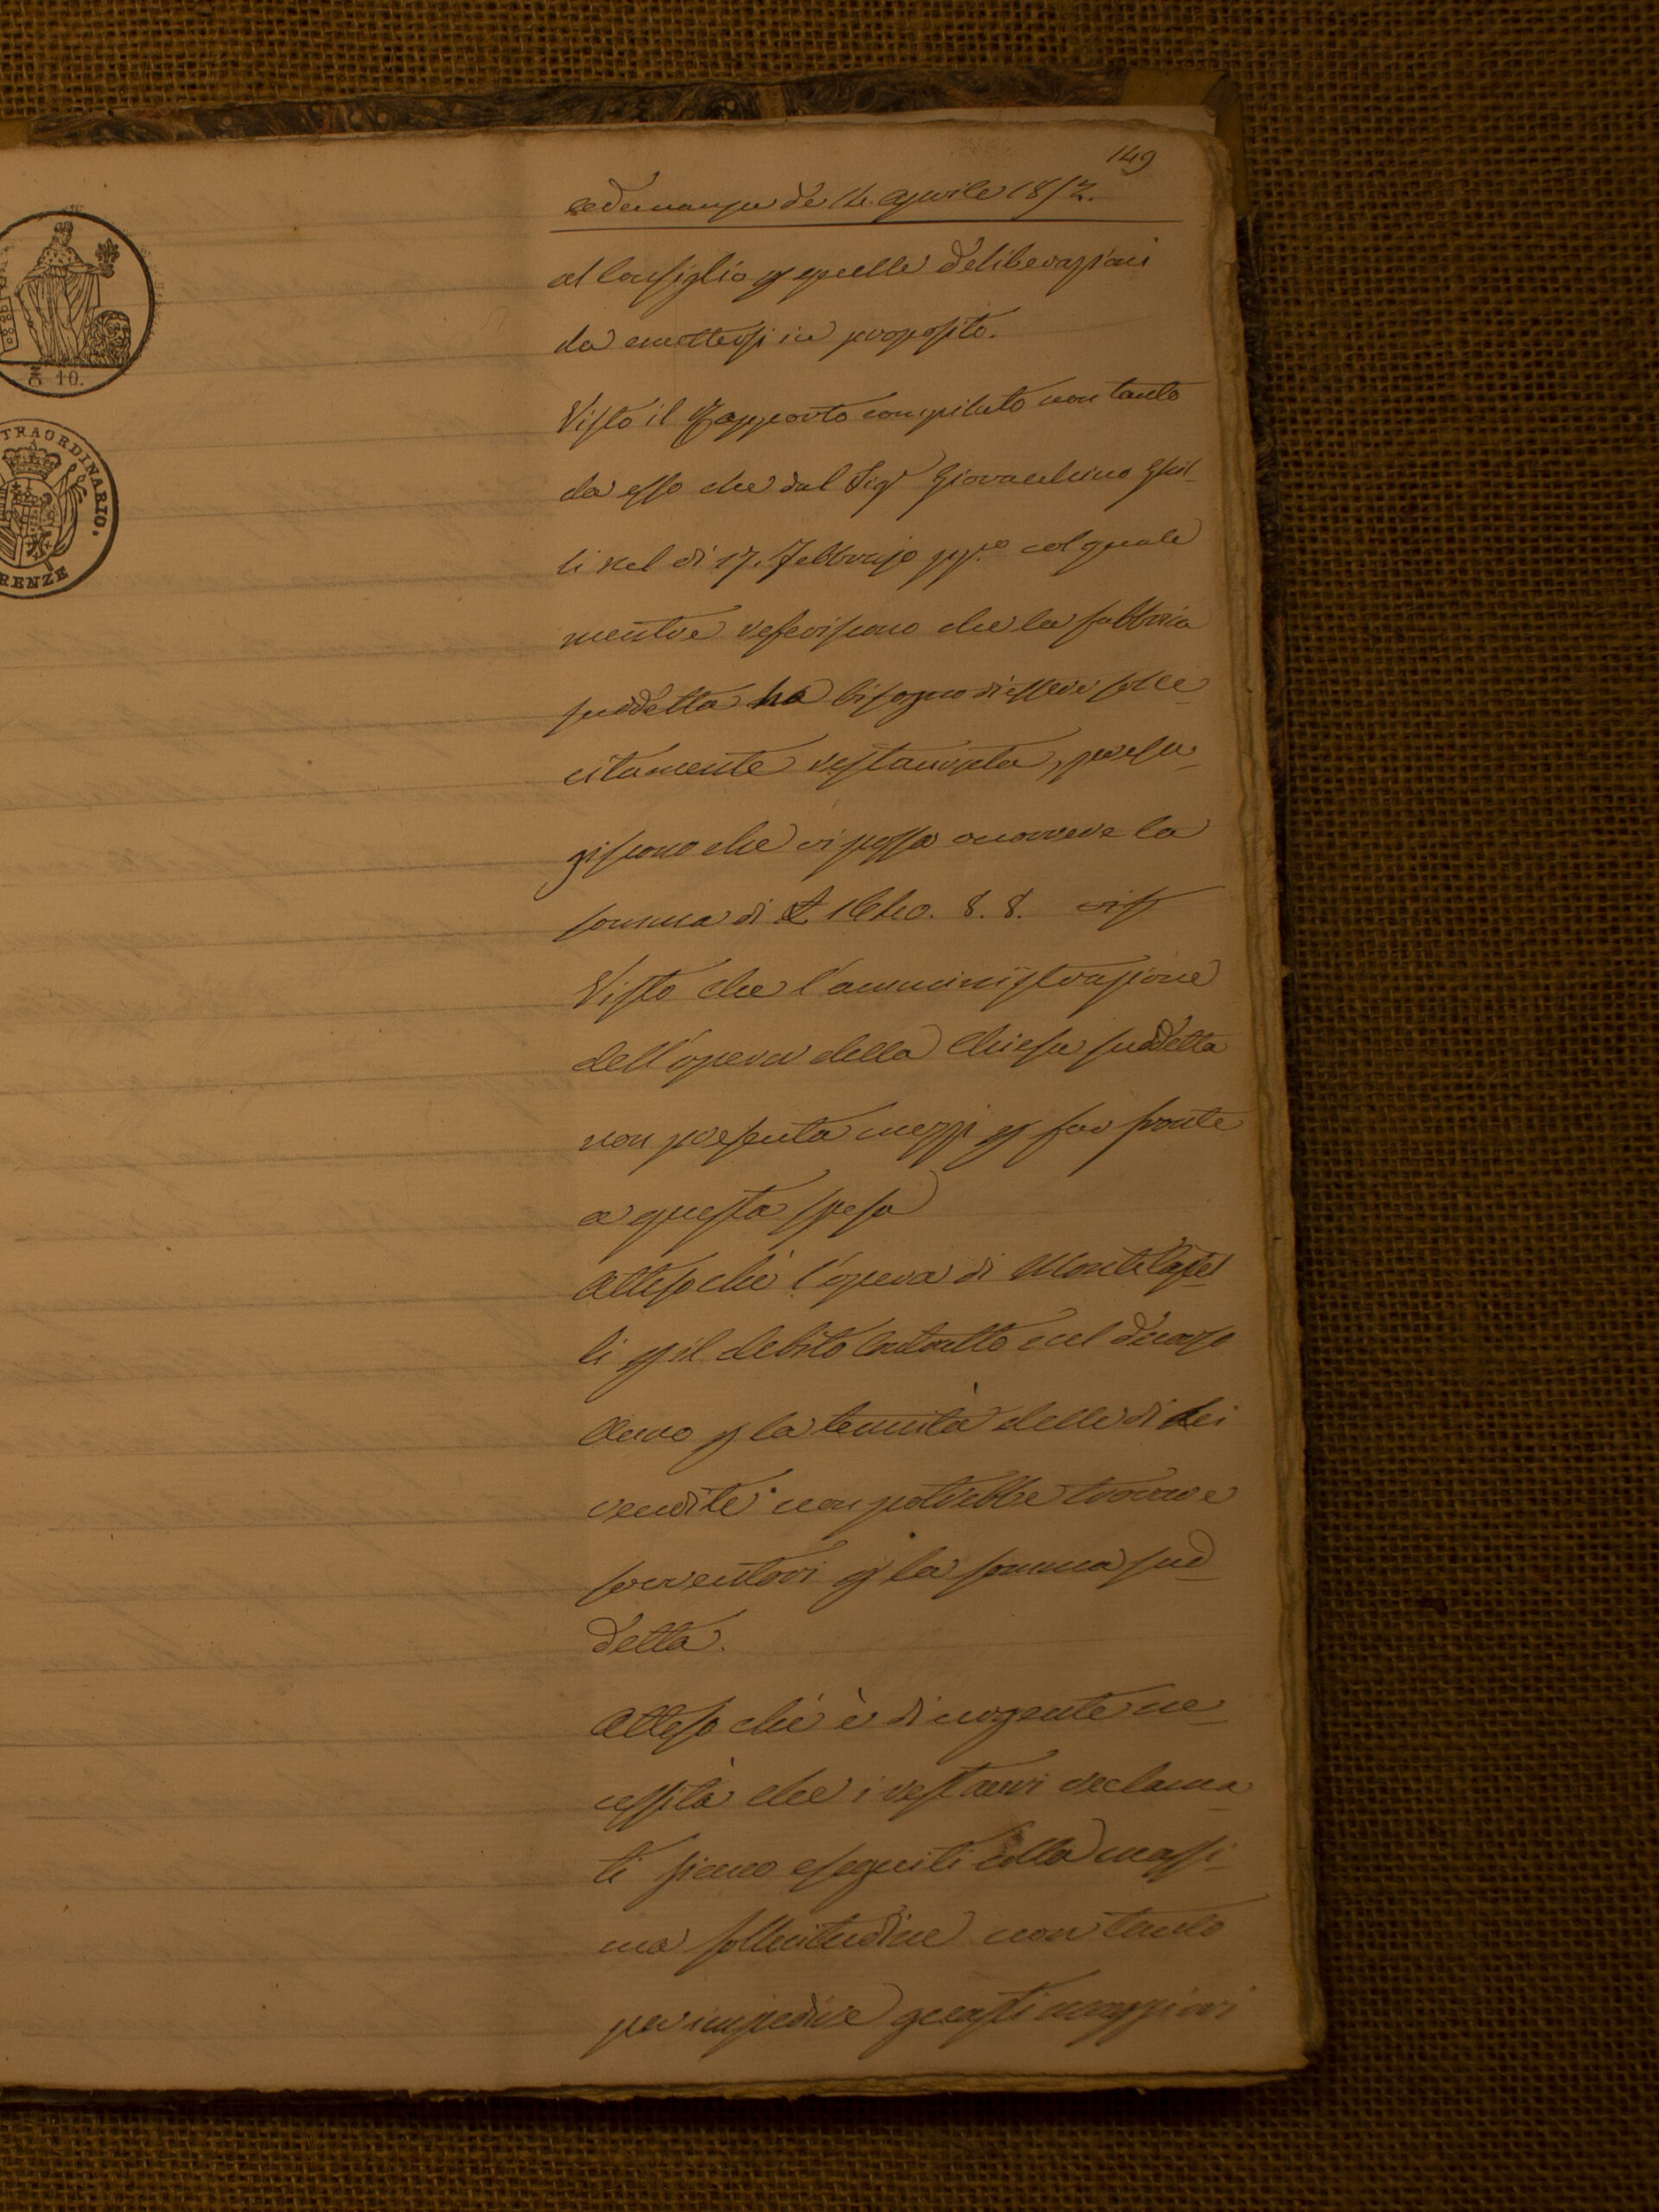 149
Adunanza de 14. Aprile 1852.
al Consiglio p quelle deliberazioni
da emettersi in proposito.
Visto il Rapporto compilato non tanto
da esso che dal Sigr Giovacchino Gril-
li nel dì 17. Febbrajo pp.o col quale
mentre referiscono che la fabbrica
suddetta ha bisogno di essere solle-
citamente restaurata, presa-
giscono che vi possa occorrere la
somma di £ 8. 8.
Visto che l'amministrazione
dell'opera della Chiesa suddetta
non presenta mezzi p far fronte
a questa spesa
Attesoché l'opera di Montelapel-
li p il debito contratto nel decorso
Anno p la tenuità delle di lei
rendite non potrebbe trovare
sovventori p la somma sud-
detta.
Attesoché è di urgente ne-
cessità che i restauri reclama-
ti siano eseguiti colla massi-
ma sollecitudine non tanto
per impedire guasti maggiori
10.
TRAORDINARIO.
RENZE